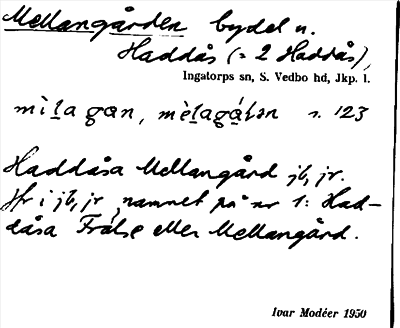 Mellangården bydel u.
Haddås (= 2 Haddås),
Ingatorps sn, S. Vedbo hd, Jkp. l.
s. 123
Haddåsa Mellangård jb, jr.
Jfr i jb, jr namnet på nr 1: Had-
dåsa Frälse eller Mellangård.
Ivar Modéer 1950